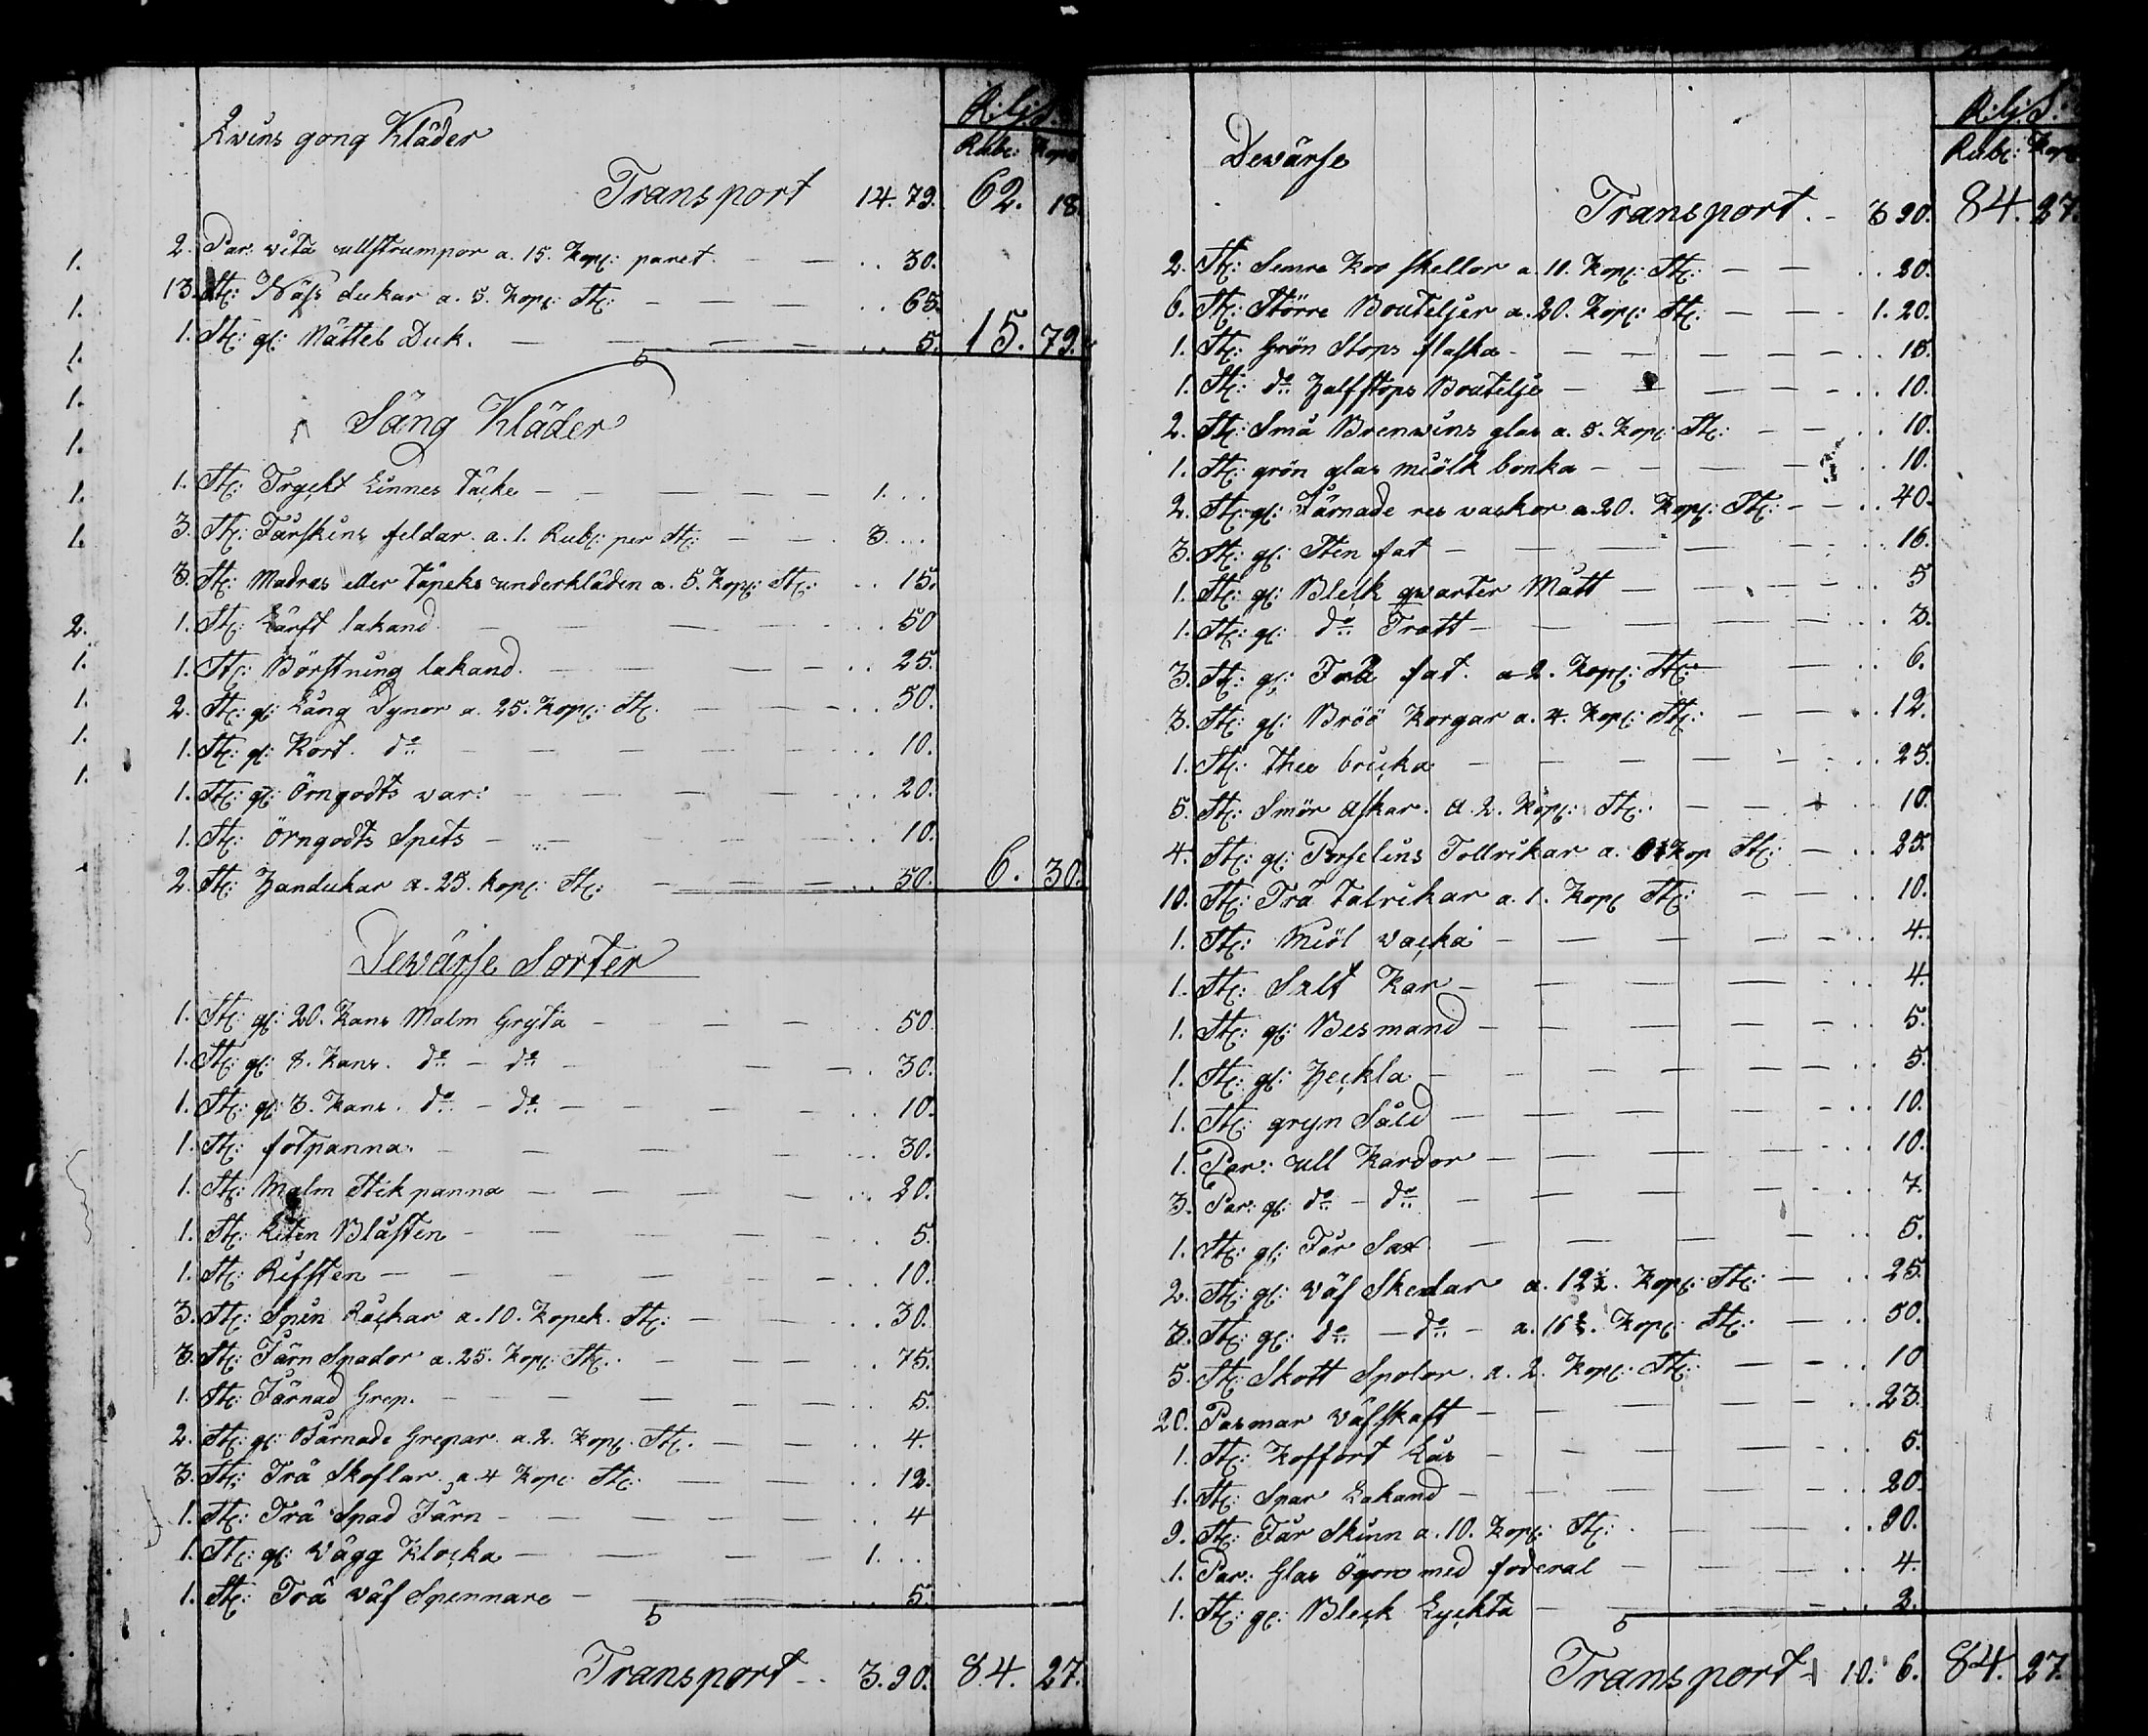 R:G:S:
Qvins gong Kläder
Rubl: Kop:
Transport 14. 79. 62. 18.
2. Par. vita ullstrumpor a. 15. Kop: paret. 30.
13. St: Näsdukar a. 5. Kop: St: 65.
1. St: gl: Nättel Duk. 5. 15. 79.
Säng Kläder
1. St: Tryckt Linnes Täcke 1.
3. St: Fårskins feldar. a. 1. Rubl: per St: 3.
3. St: Madras eller Täpeks underkläden a. 5. Kop: St: 15.
1. St: Lärft lakand. 50
1. St: Börstning lakand. 25.
2. St: gl: Lång Dynor a. 25. Kop: St: 50.
1. St: gl: Kort. do 10.
1. St: gl: Örngodts var: 20.
1. St: Örngodts Spets 10.
2. St: Handukar a. 25. kop: St: 50. 6. 30.
Dewärse Sorter
1. St: gl: 20. Kans Malm Gryta 50.
1. St: gl: 8. Kans. do - do 30.
1. St: gl: 3. Kans. do - do 10.
1. St: fotpanna. 30.
1. St: Malm Stik panna 20.
1. St: Liten Blåsten 5.
1. St: Rifsten 10.
3. St: Spin Råckar a. 10. Kopek. St: 30.
3. St: Järn Spador a. 25. Kop: St: 75.
1. St: Järnad Grep. 5.
2. St: gl: Ojärnade Grepar. a. 2. Kop: St: 4.
3. St: Trä Skoflar. a. 4 Kop: St: 12.
1. St: Trä Spad Järn 4
1. St: gl: Vägg Klocka 1.
1. St: Trä väf Spennare 5.
Transport 3. 90. 84. 27.
R:G:S:
Dewärse
Rubl: Kop:
Transport. 3 90. 84. 27.
2. St: Semre Koo skellor a. 10. Kop: St: 20.
6. St: Större Bouteljer a. 20. Kop: St: 1. 20.
1. St: Grön Stops flaska 15.
1. St: do Halfstops Boutelje 10.
2. St: Små Brenwins glas a. 5. Kop: St: 10.
1. St: grön glas miölk bonka 10.
2. St: gl: Järnade res vackor a. 20. Kop: St: 40.
3. St: gl: Sten fat 16.
1. St: gl: Bleck qwarter Mått 5
1. St: gl: do Tratt 3.
3. St: gl: Trä fat. a 2. Kop: St: 6.
3. St: gl: Bröö Korgar a. 4. Kop: St: 12.
1. St: thee bricka 25.
5. St: Smör askar. a. 2. Kop: St: 10.
4. St: gl: Porselins Tollrikar a. Kop St: 25.
10. St: Trä talrikar a. 1. Kop St: 10.
1. St: Miöl vacka 4.
1. St: Salt Kar 4.
1. St: gl: Besmand 5.
1. St: gl: Heckla 5.
1. St: gryn Såld 10.
1. Par: ull Kardor 10.
3. Par: gl: do - do 7.
1. St: gl: Får Sax 5.
2. St: gl: väf Skedar a. 12½. Kop: St: 25.
3. St: gl: do - do - a. 16⅔. Kop: St: 50.
5. St: Skott Spolor. a. 2. Kop: St: 10
20. Pasmar väfskaft 23.
1. St: Koffort Lås 5.
1. St: Spar Lakand 20.
9. St: Får Skinn a. 10. Kop: St: 90.
1. Par: Glas ögon med foderal 4.
1. St: gl: Bleck Lyckta 2.
Transport 10. 6. 84. 27.